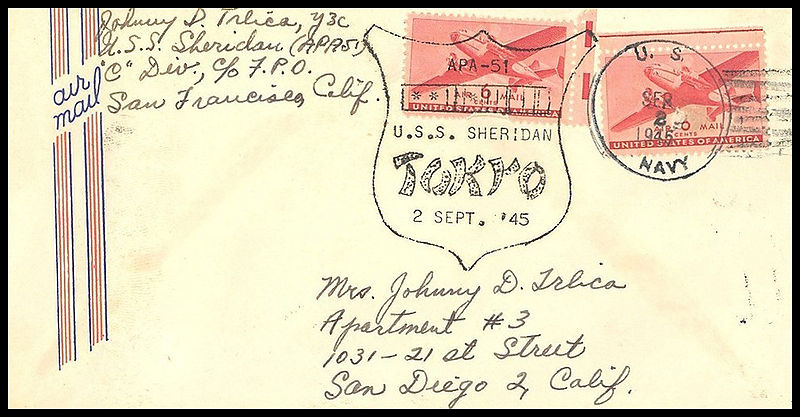 Johnny D. Trlica, Y3c
U.S.S. Sheridan (APA51)
"C" Div., c/o F.P.O.
San Francisco, Calif.
air
mail
APA-51
6
AIR CENTS MAIL
UNITED STATES OF AMERICA
U.S.S. SHERIDAN
TOKYO
2 SEPT. '45
U. S.
SEP
2
1945
NAVY
MAIL
CENTS
UNITED STATES OF AMERICA
Mrs. Johnny D. Trlica
Apartment #3
1031-21 st Street
San Diego 2, Calif.